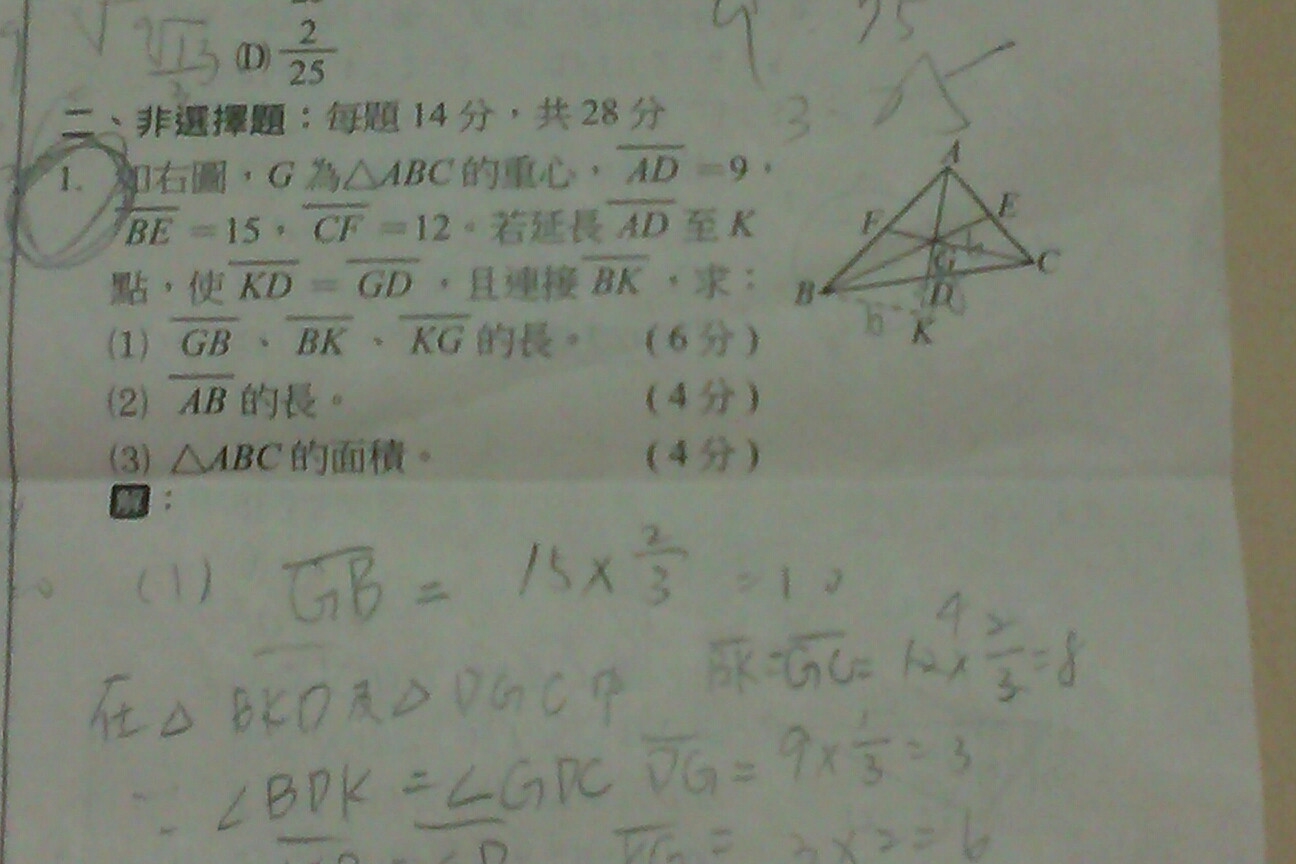 (D) 2/25
二、非選擇題：每題 14 分，共 28 分
1. 如右圖，G 為△ABC 的重心，\overline{AD} =9，
\overline{BE} =15，\overline{CF} =12。若延長\overline{AD} 至 K
點，使 \overline{KD} = \overline{GD}，且連接 \overline{BK}，求：
(1) \overline{GB}、\overline{BK}、\overline{KG} 的長。 (6 分)
(2) \overline{AB} 的長。 (4 分)
(3) △ABC 的面積。 (4 分)
A
F E
G C
B D
6
K
解：
(1) \overline{GB} = 15 × 2/3 = 10
\overline{BK} = \overline{GC} = 12 × 2/3 = 8
在△BKD及△DGC中
\overline{DG} = 9 × 1/3 = 3
∵ ∠BDK = ∠GDC
= 3 × 2 = 6